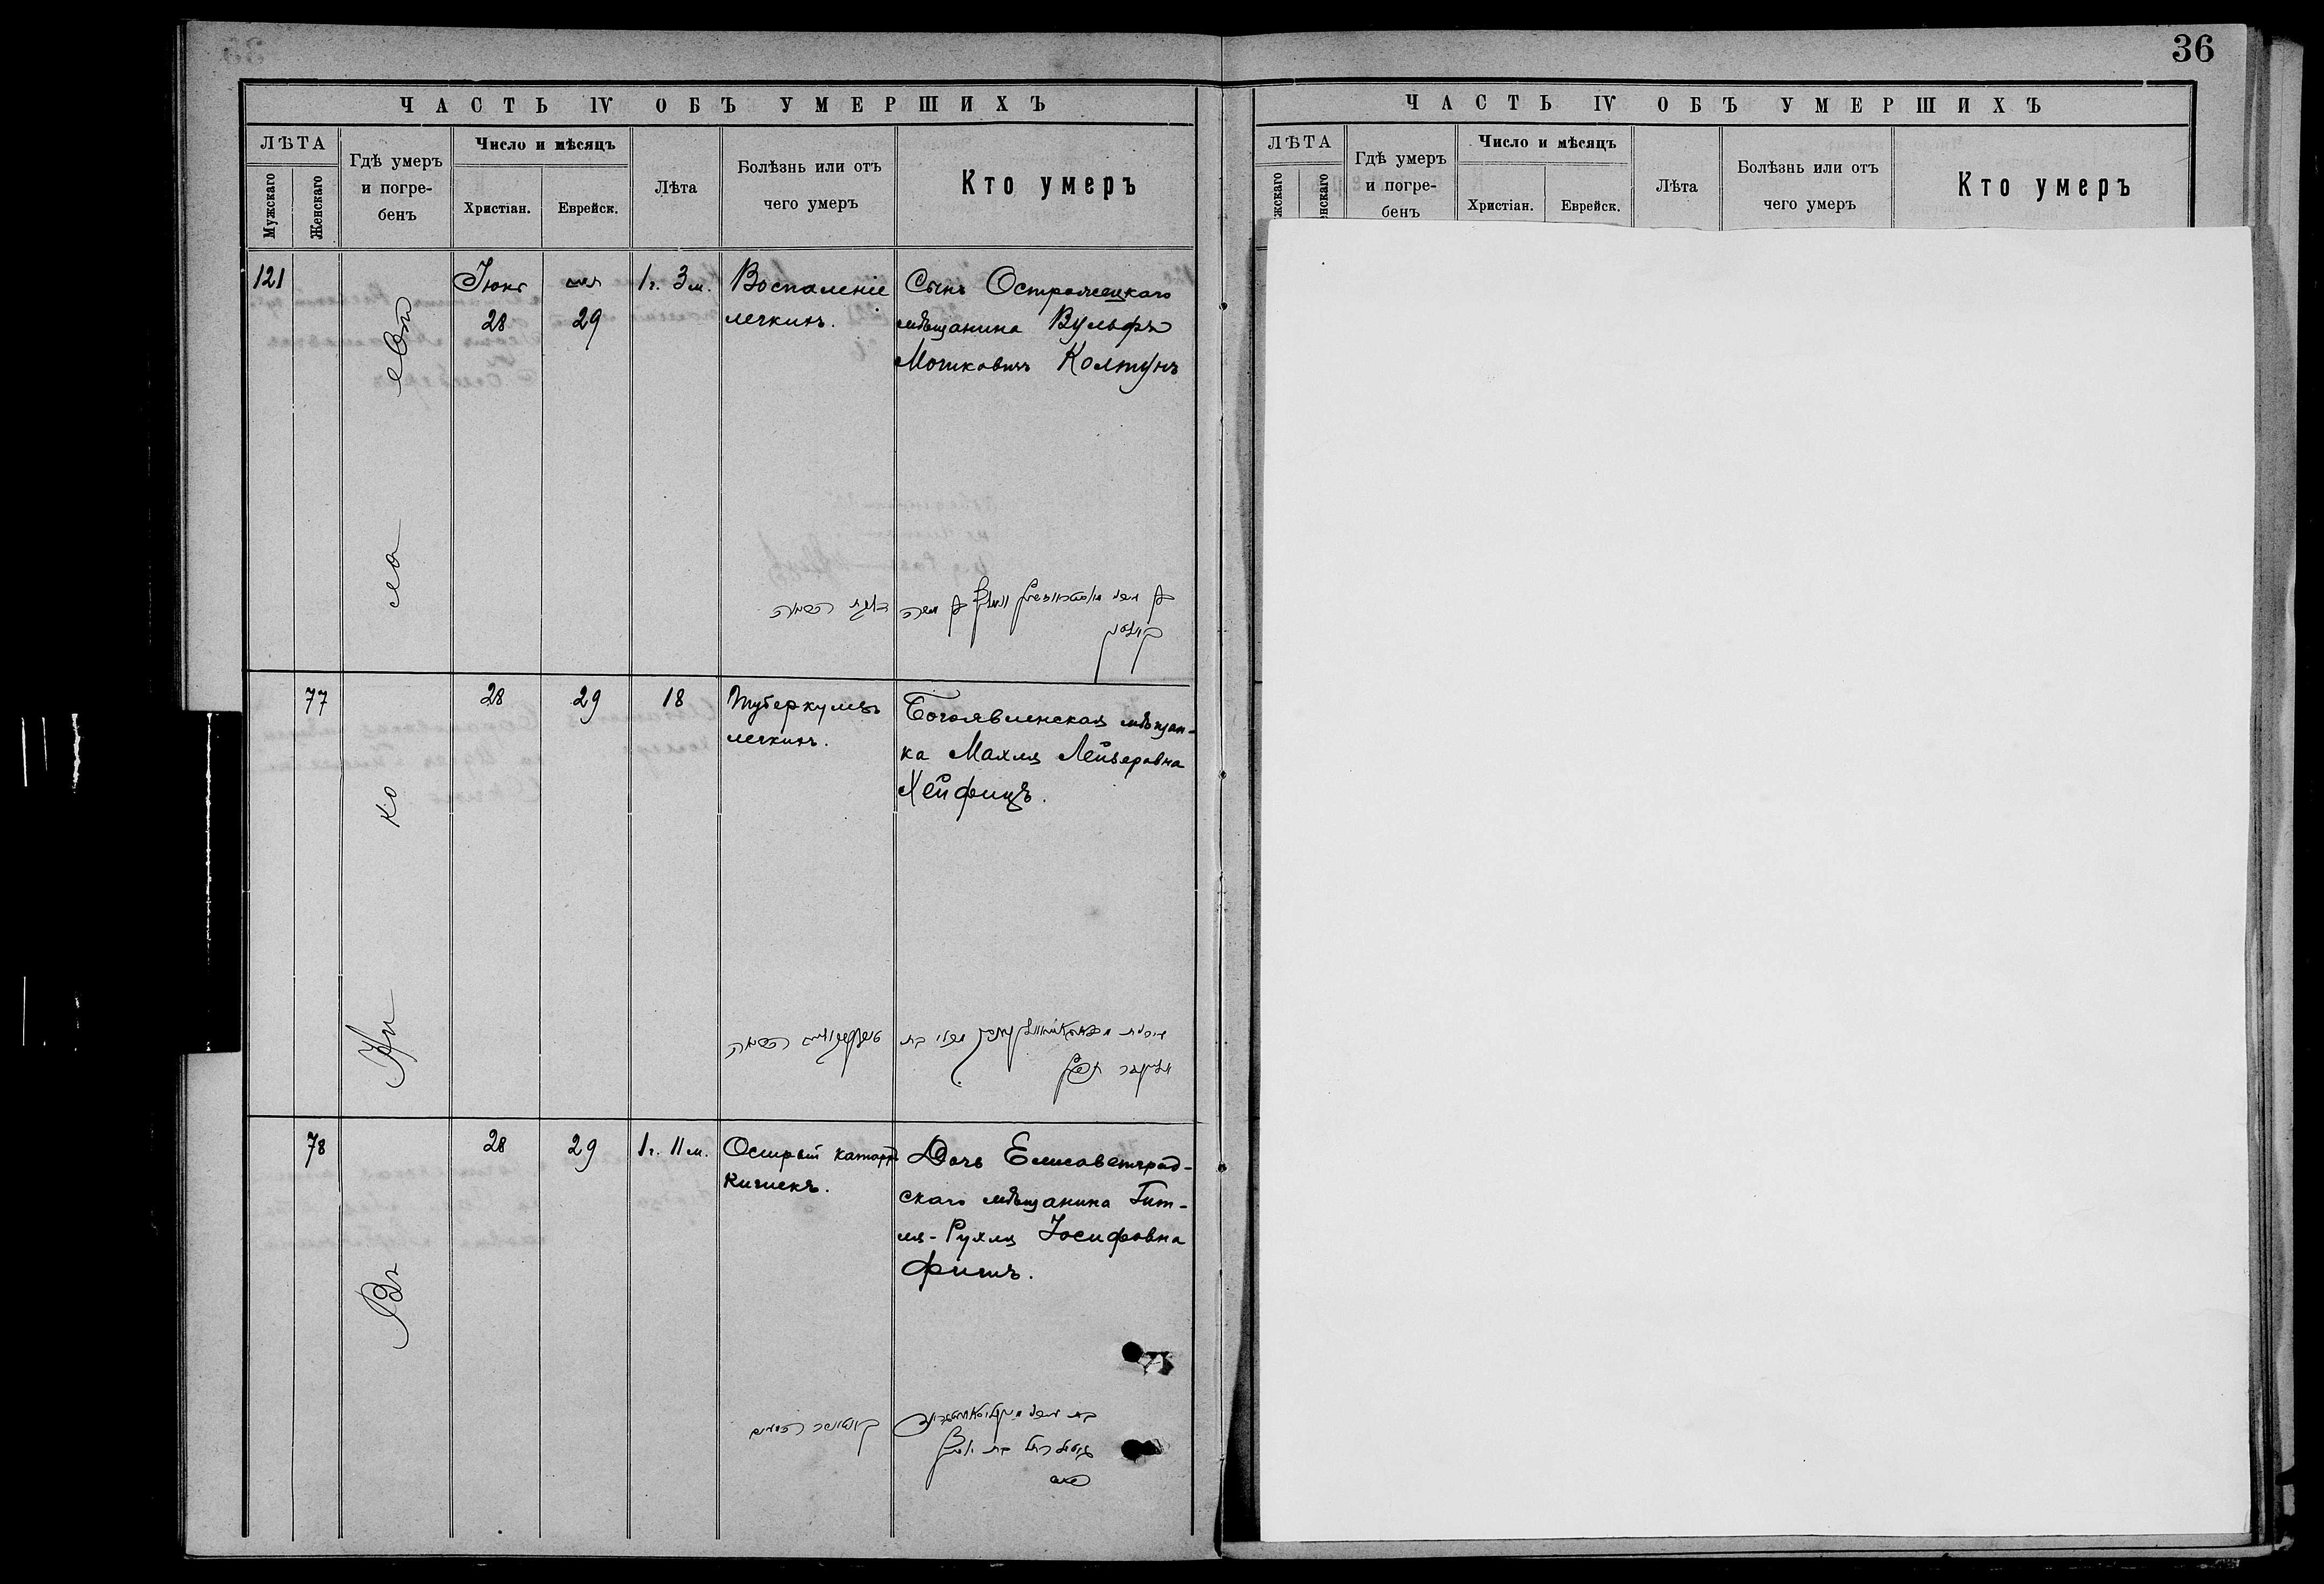 36
ЧАСТЬ IV ОБЪ УМЕРШИХЪ
ЛѢТА
Мужскаго
Женскаго
Гдѣ умеръ
и погре-
бенъ
Число и мѣсяцъ
Христіан.
Еврейск.
Лѣта
Болѣзнь или отъ
чего умеръ
Кто умеръ
121
Іюнь
28
29
1 г. 3 м.
Воспаленіе
легкихъ.
Сынъ Острожецкаго
мѣщанина Вульфъ
Мошковичъ Колтунъ
77
28
29
18
Туберкулезъ
легкихъ.
Богоявленская мѣщан-
ка Махля Лейзеровна
Хейфицъ.
78
28
29
1 г. 11 м.
Острый катарръ
кишекъ.
Дочь Елисаветград-
скаго мѣщанина Гит-
ля-Рухля Іосифовна
Фишъ.
Въ Николаевѣ
ЧАСТЬ IV ОБЪ УМЕРШИХЪ
ЛѢТА
жскаго
нскаго
Гдѣ умеръ
и погре-
бенъ
Число и мѣсяцъ
Христіан.
Еврейск.
Лѣта
Болѣзнь или отъ
чего умеръ
Кто умеръ